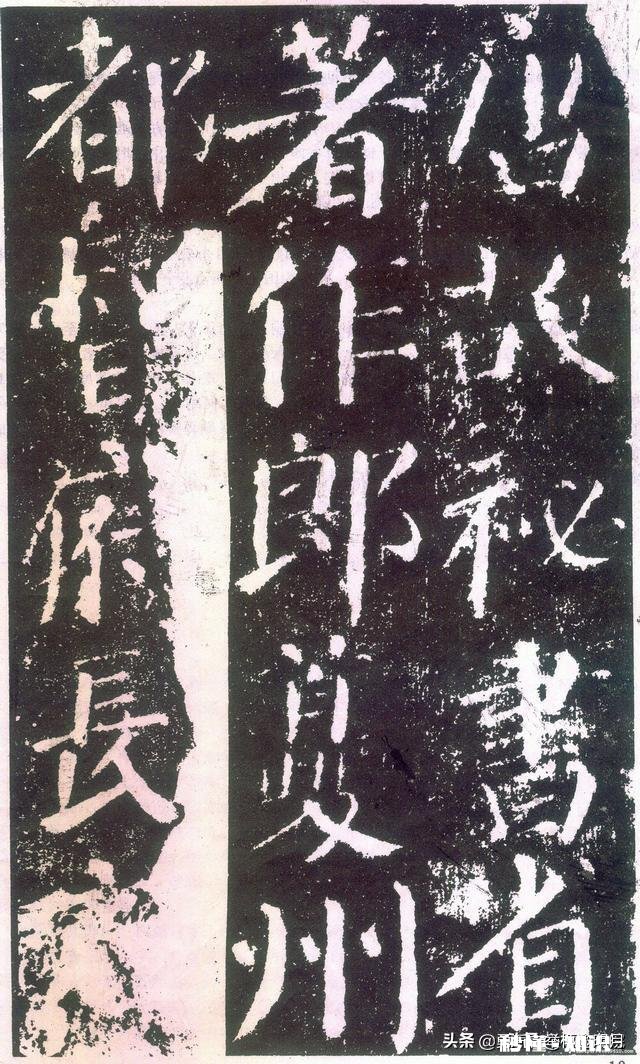 唐故祕書省
著作郎夔州
都督府長
头条